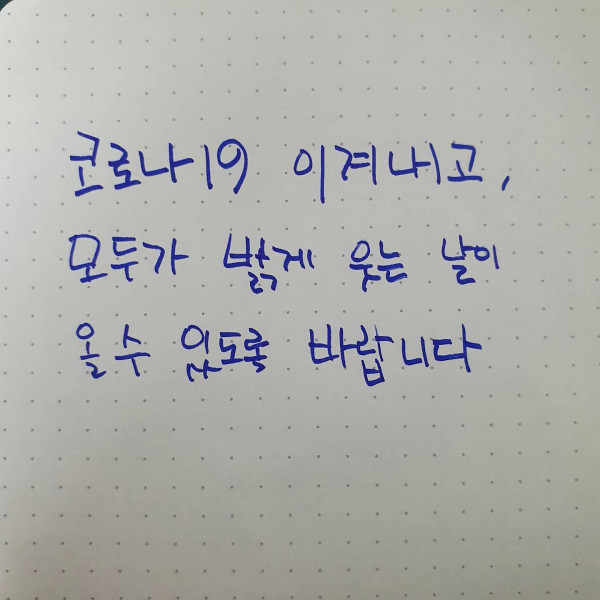 코로나19 이겨내고,
모두가 밝게 웃는 날이
올수 있도록 바랍니다